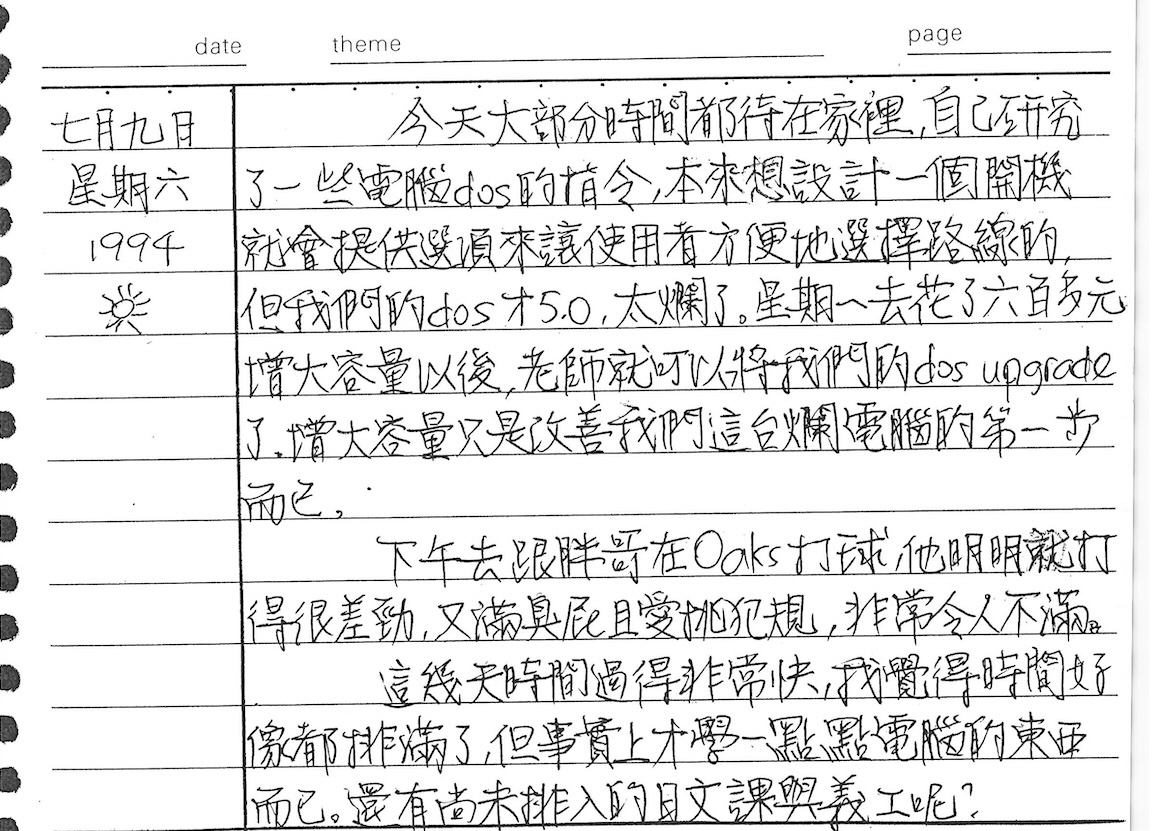 date theme page
七月九日 今天大部分時間都待在家裡,自己研究
星期六 了一些電腦dos的指令,本來想設計一個開機
1994 就會提供選項來讓使用者方便地選擇路線的,
但我們的dos才5.0,太爛了。星期一去花了六百多元
增大容量以後,老師就可以將我們的dos upgrade
了.增大容量只是改善我們這台爛電腦的第一步
而已。
下午去跟胖哥在Oaks打球,他明明就打
得很差勁,又滿臭屁且愛挑犯規,非常令人不滿。
這幾天時間過得非常快,我覺得時間好
像都排滿了,但事實上才學一點點電腦的東西
而已。還有尚未排入的日文課與義工呢?